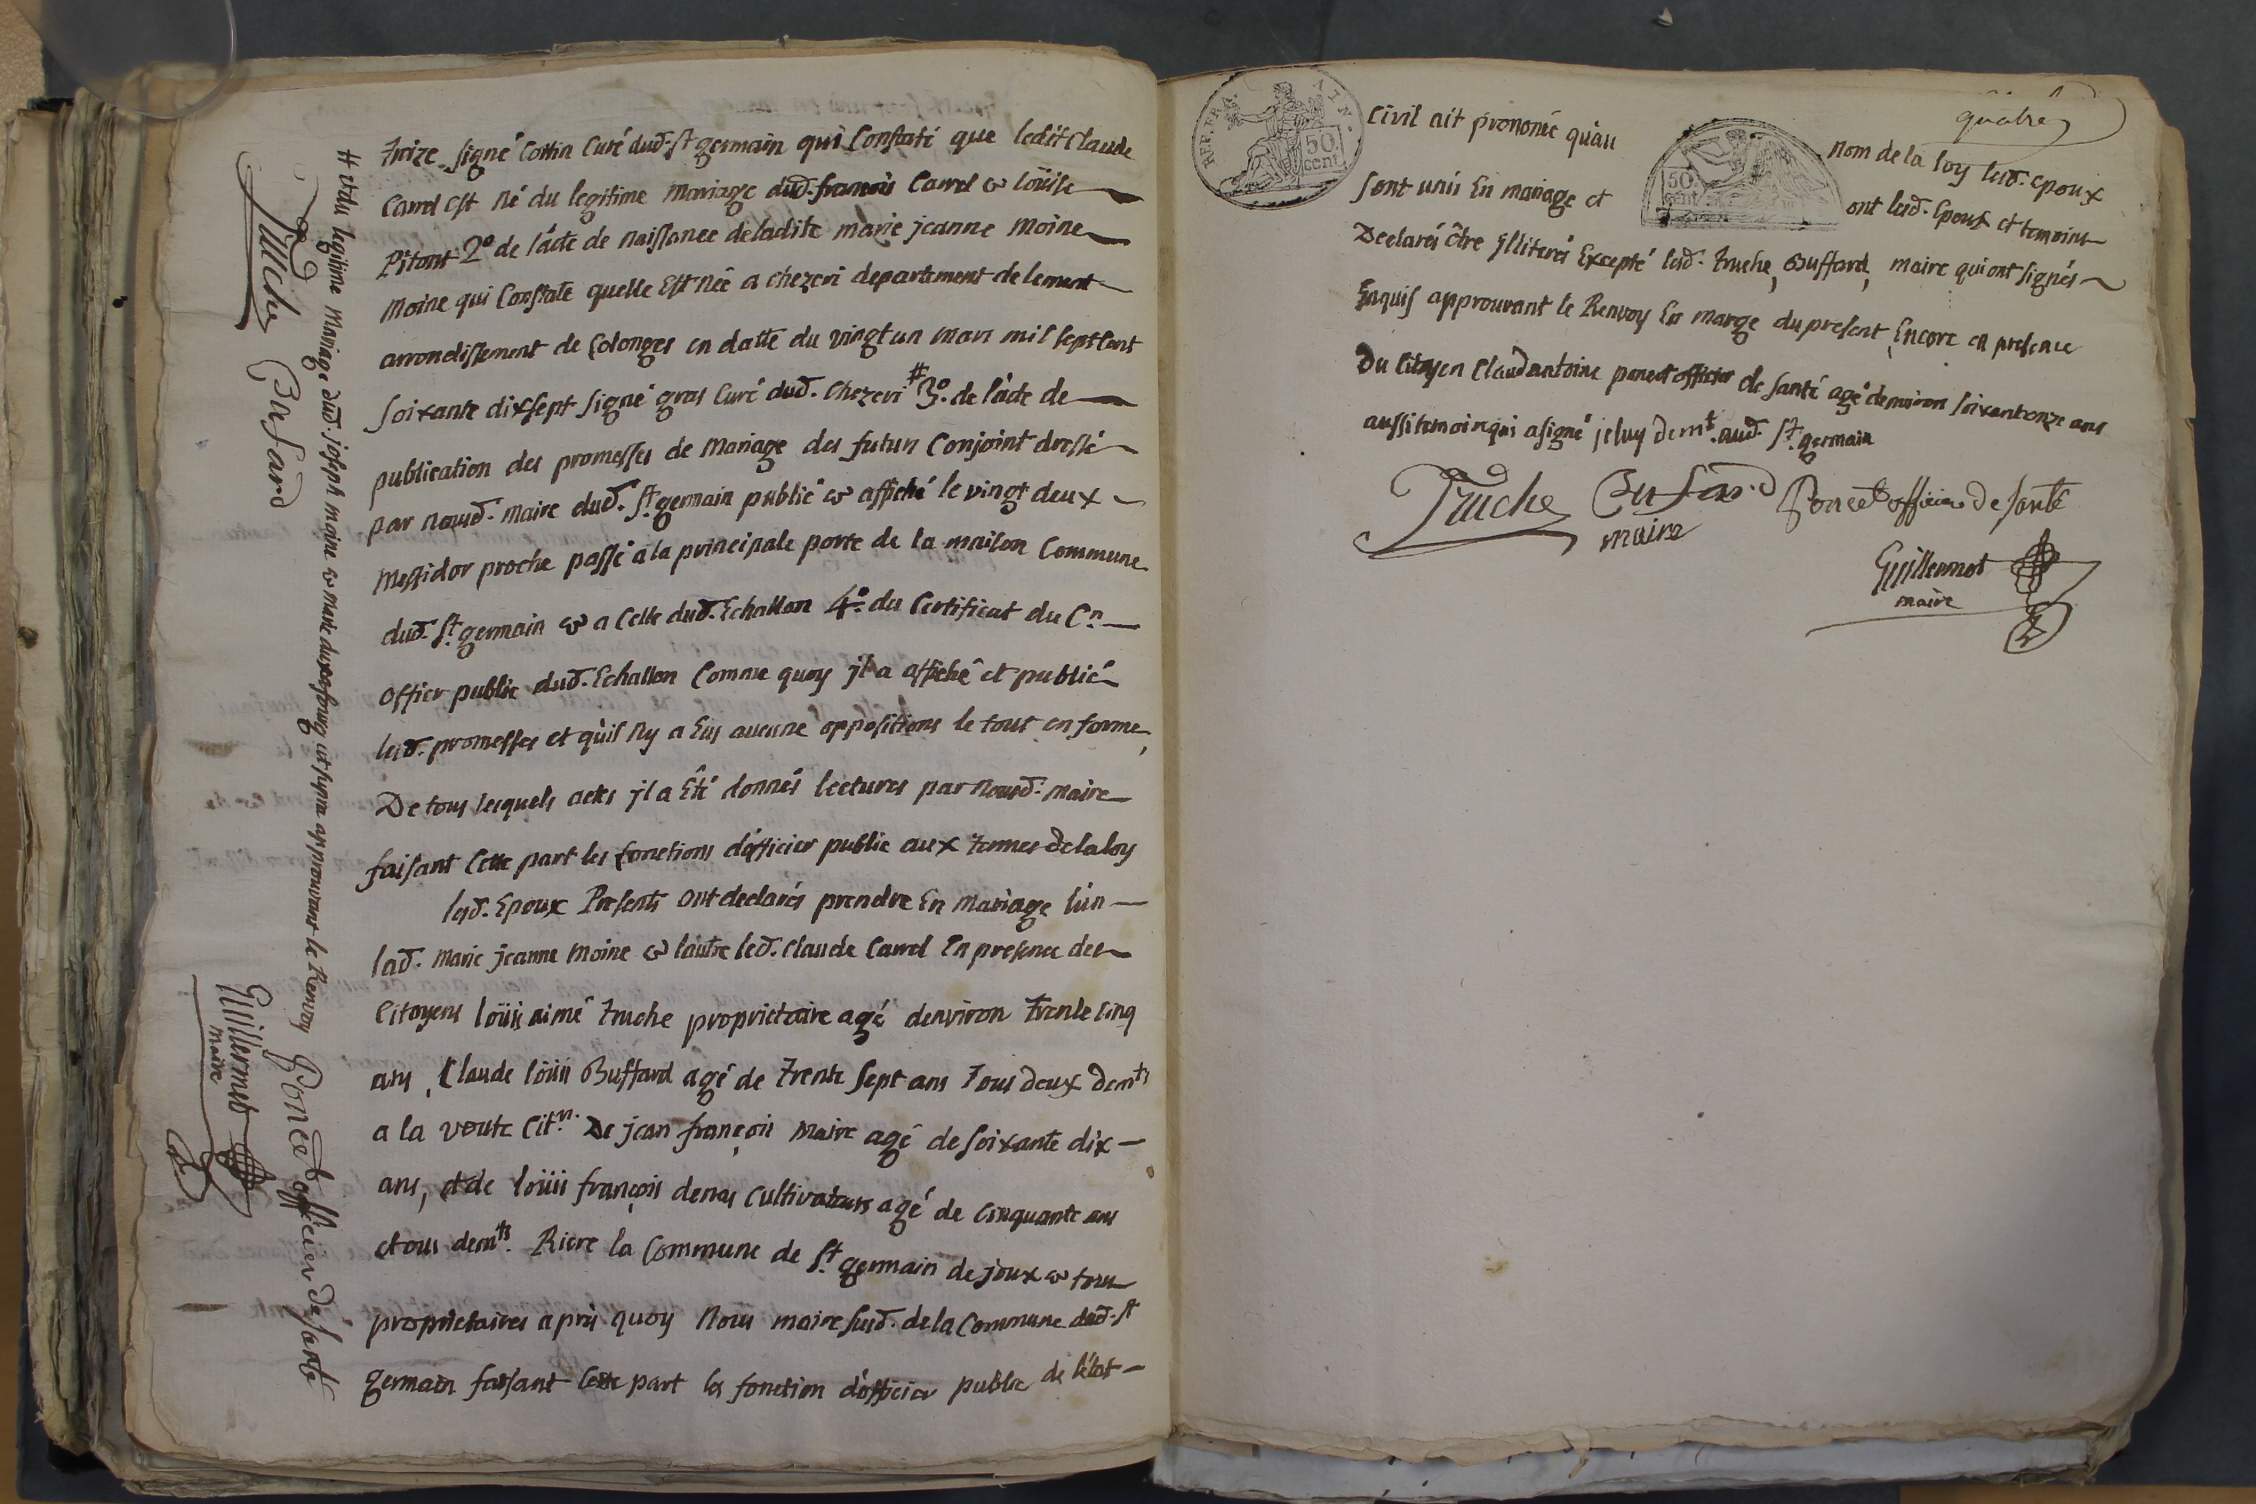 treize signé Cottin Curé dud. St germain qui Constate que ledit Claude
Carrel est né du legitime mariage dud. francois Carrel & loüise
Pitont 2º de l'acte de naissance de ladite marie jeanne moine
moine qui Constate quelle Est née a chezeri departement de lemant
arrondissement de Colonges en datte du vingt un mars mil sept Cent
soixante dix sept signé gras Curé dud. Chezeri # 3º. de l'acte de
publication des promesses de mariage des futur Conjoint dressé
par nousd. maire dud. St germain publié & affiché le vingt deux
messidor proche passé a la principale porte de la maison Commune
dud. St germain & a Celle dud. Echallon 4º. du Certificat du Cn
officr public dud. Echallon Comme quoy jl a affiché et publié
lesd. promesses et qu'il ny a Eus aucune oppositions le tout en forme,
De tous lesquels actes jl a Eté donnés lectures par nousd. maire
faisant Cette part les fonctions d'officier public aux termes de la loy
lesd. Epoux Presents ont declarés prendre En mariage l'un
lad. marie jeanne moine & lautre led. Claude Carrel En presence des
Citoyens loüis aimé truche proprietaire agé denviron trente Cinq
ans, Claude loüis Buffard agé de trente sept ans tous deux demts
a la voute Citn. De jean françois maire agé de soixante dix
ans, et de loüis françois cultivateurs agé de Cinquante ans
et ous demts. Riere la Commune de St germain de joux & tous
proprietaires apris quoy Nous maire susd. de la Commune dud. St
germain faisant Cette part les fonction d'officier public de l'état
# et du legitime mariage dud. joseph moine & marie approuvant le Renvoy
Truche Bufard Poncet officier de santé
Guillermet
maire
quatre
REP. FRA. AIN.
50
cent.
50
cent
Civil ait prononcé qu'au nom de la loy lesd. epoux
sont unis En mariage et ont lesd. Epoux et temoins
Declarés être jlliterés Excepté lesd. truche, Buffard, maire qui ont signés
Enquis approuvant le Renvoy En marge du present, Encore en presence
Du Citoyen Claudantoine poncet officier de santé agé denviron soixantonze ans
aussi temoin qui a signé jcluy demt. aud. St. germain
Truche Bufard Poncet officier de santé
maire
Guillermet
maire